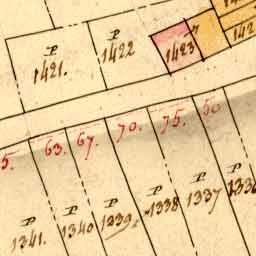 P
1421.
P
1422
1423
142
5.
63.
67.
70.
75.
50
P
1341.
P
1340
P
1339
P
1338
P
1337
P
1336